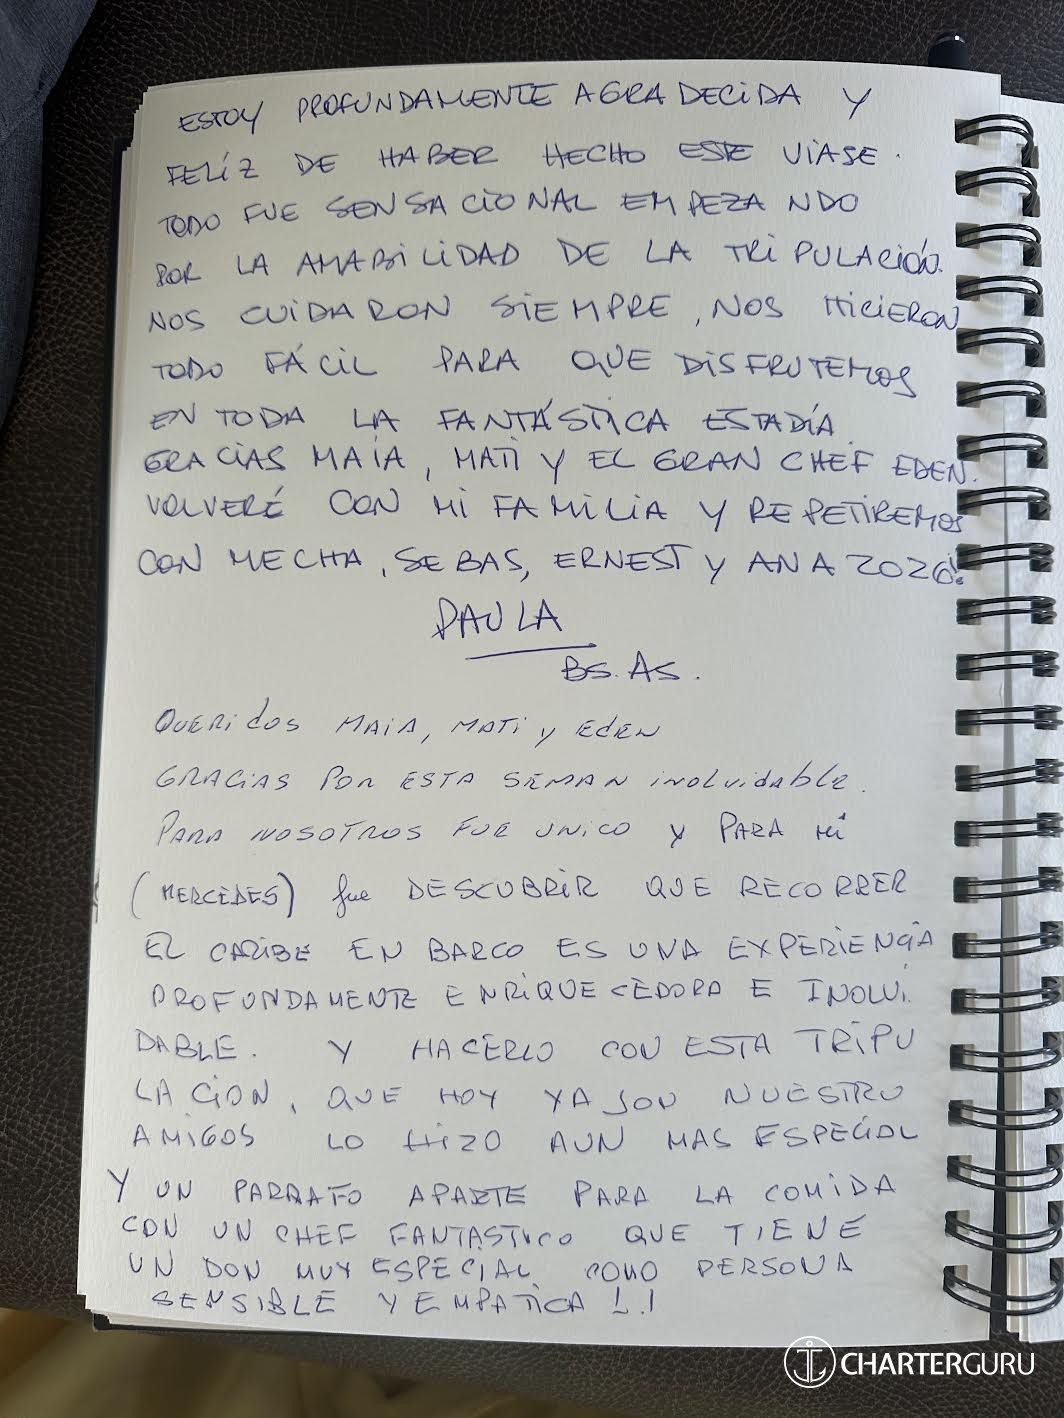 ESTOY PROFUNDAMENTE AGRADECIDA Y
FELÍZ DE HABER HECHO ESTE VIAJE.
TODO FUE SENSACIONAL EMPEZANDO
POR LA AMABILIDAD DE LA TRIPULACIÓN.
NOS CUIDARON SIEMPRE, NOS HICIERON
TODO FÁCIL PARA QUE DISFRUTEMOS
EN TODA LA FANTÁSTICA ESTADÍA.
GRACIAS MAIA, MATI Y EL GRAN CHEF EDEN.
VOLVERÉ CON MI FAMILIA Y REPETIREMOS
CON MECHA, SEBAS, ERNEST Y ANA 2026!
PAULA
BS. AS.
QUERIDOS MAIA, MATI y EDEN
GRACIAS POR ESTA SEMAN INOLVIDABLE.
PARA NOSOTROS FUE UNICO y PARA MÍ
(MERCEDES) fue DESCUBRIR QUE RECORRER
EL CARIBE EN BARCO ES UNA EXPERIENCIA
PROFUNDAMENTE ENRIQUECEDORA E INOLVI
DABLE. Y HACERLO CON ESTA TRIPU
LACION, QUE HOY YA SON NUESTRO
AMIGOS LO HIZO AUN MAS ESPECIAL
Y UN PARRAFO APARTE PARA LA COMIDA
CON UN CHEF FANTASTICO QUE TIENE
UN DON MUY ESPECIAL COMO PERSONA
SENSIBLE Y EMPATICA !.!
CHARTERGURU